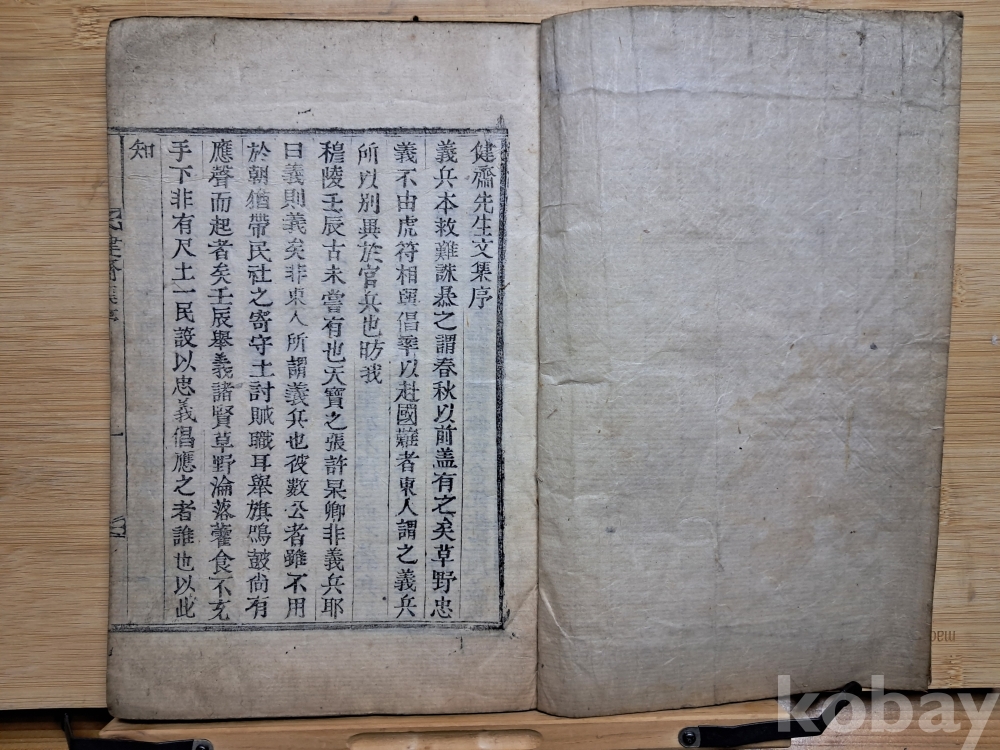 健齋先生文集序
義兵本救難誅暴之謂春秋以前盖有之矣草野忠
義不由虎符相與倡率以赴國難者東人謂之義兵
所以別異於官兵也昉我
穆陵壬辰古未嘗有也天寶之張許杲卿非義兵耶
曰義則義矣非東人所謂義兵也彼數公者雖不用
於朝猶帶民社之寄守土討賊職耳舉旗鳴鼓尙有
應聲而起者矣壬辰舉義諸賢草野淪落藿食不充
手下非有尺土一民設以忠義倡應之者誰也以此
知
健齋集序
一
kobay